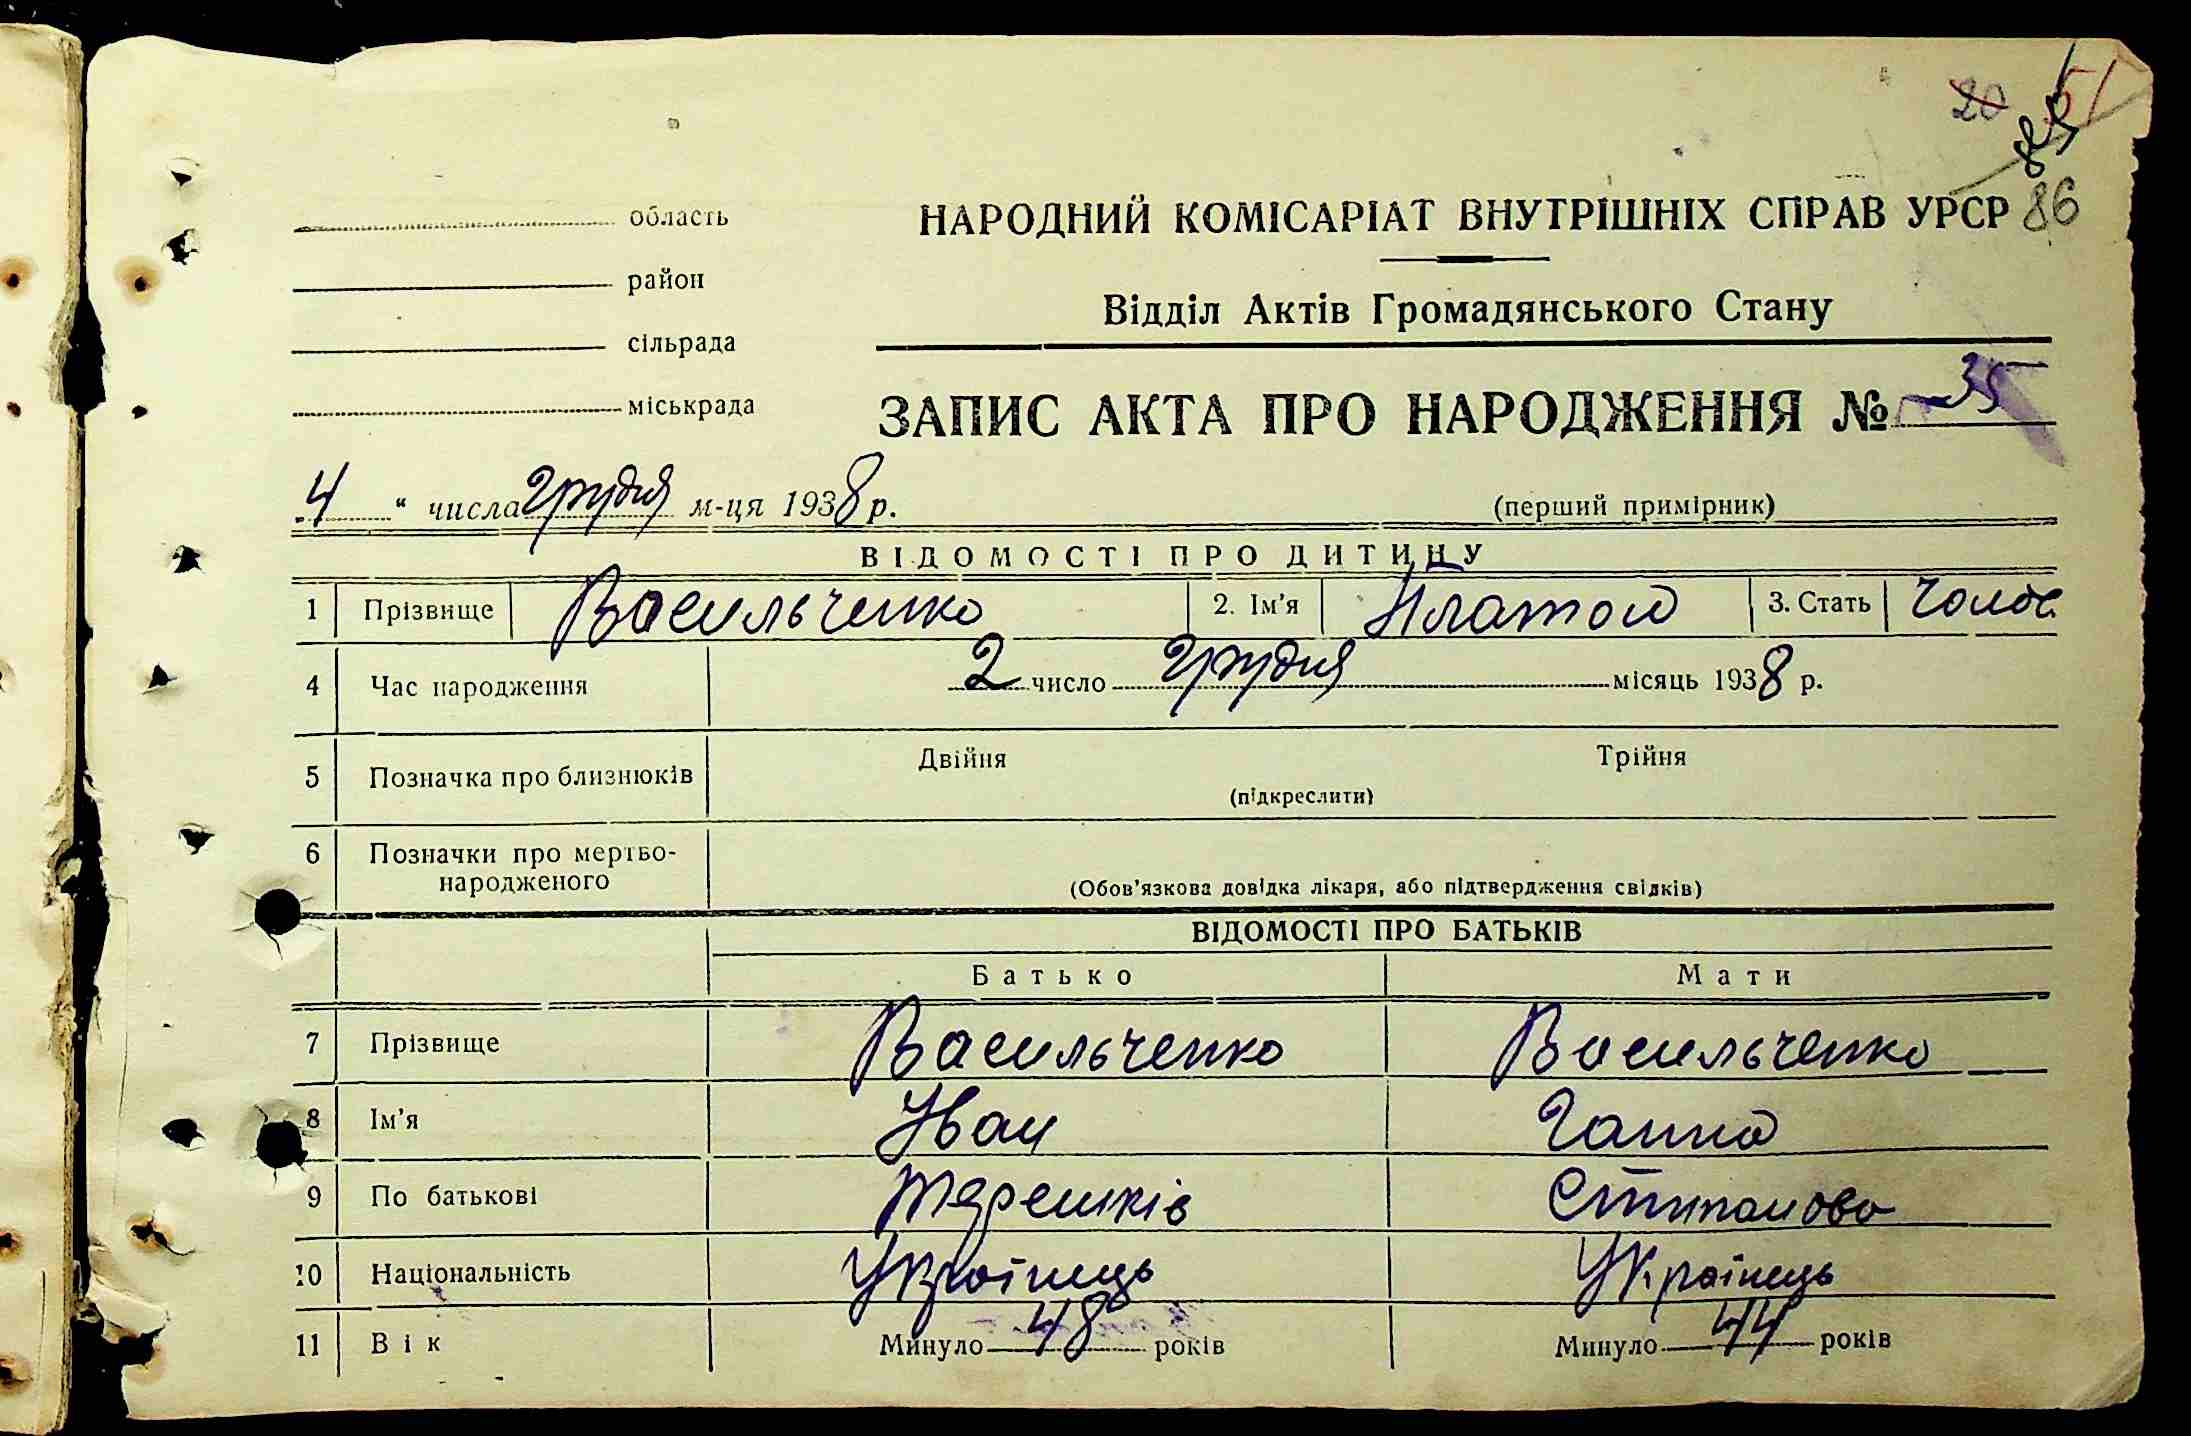 20 51
85
86
область
район
сільрада
міськрада
НАРОДНИЙ КОМІСАРІАТ ВНУТРІШНІХ СПРАВ УРСР
Відділ Актів Громадянського Стану
ЗАПИС АКТА ПРО НАРОДЖЕННЯ № 35
4 " числа грудня м-ця 1938 р.
(перший примірник)
ВІДОМОСТІ ПРО ДИТИНУ
1 Прізвище Васильченко 2. Ім'я Платон 3. Стать чолов.
4 Час народження 2 число грудня місяць 1938 р.
5 Позначка про близнюків Двійня Трійня
(підкреслити)
6 Позначки про мертво-
народженого
(Обов'язкова довідка лікаря, або підтвердження свідків)
ВІДОМОСТІ ПРО БАТЬКІВ
Батько Мати
7 Прізвище Васильченко Васильченко
8 Ім'я Іван Ганна
9 По батькові Терешків Степанова
10 Національність Українець Українець
11 Вік Минуло 48 років Минуло 44 років